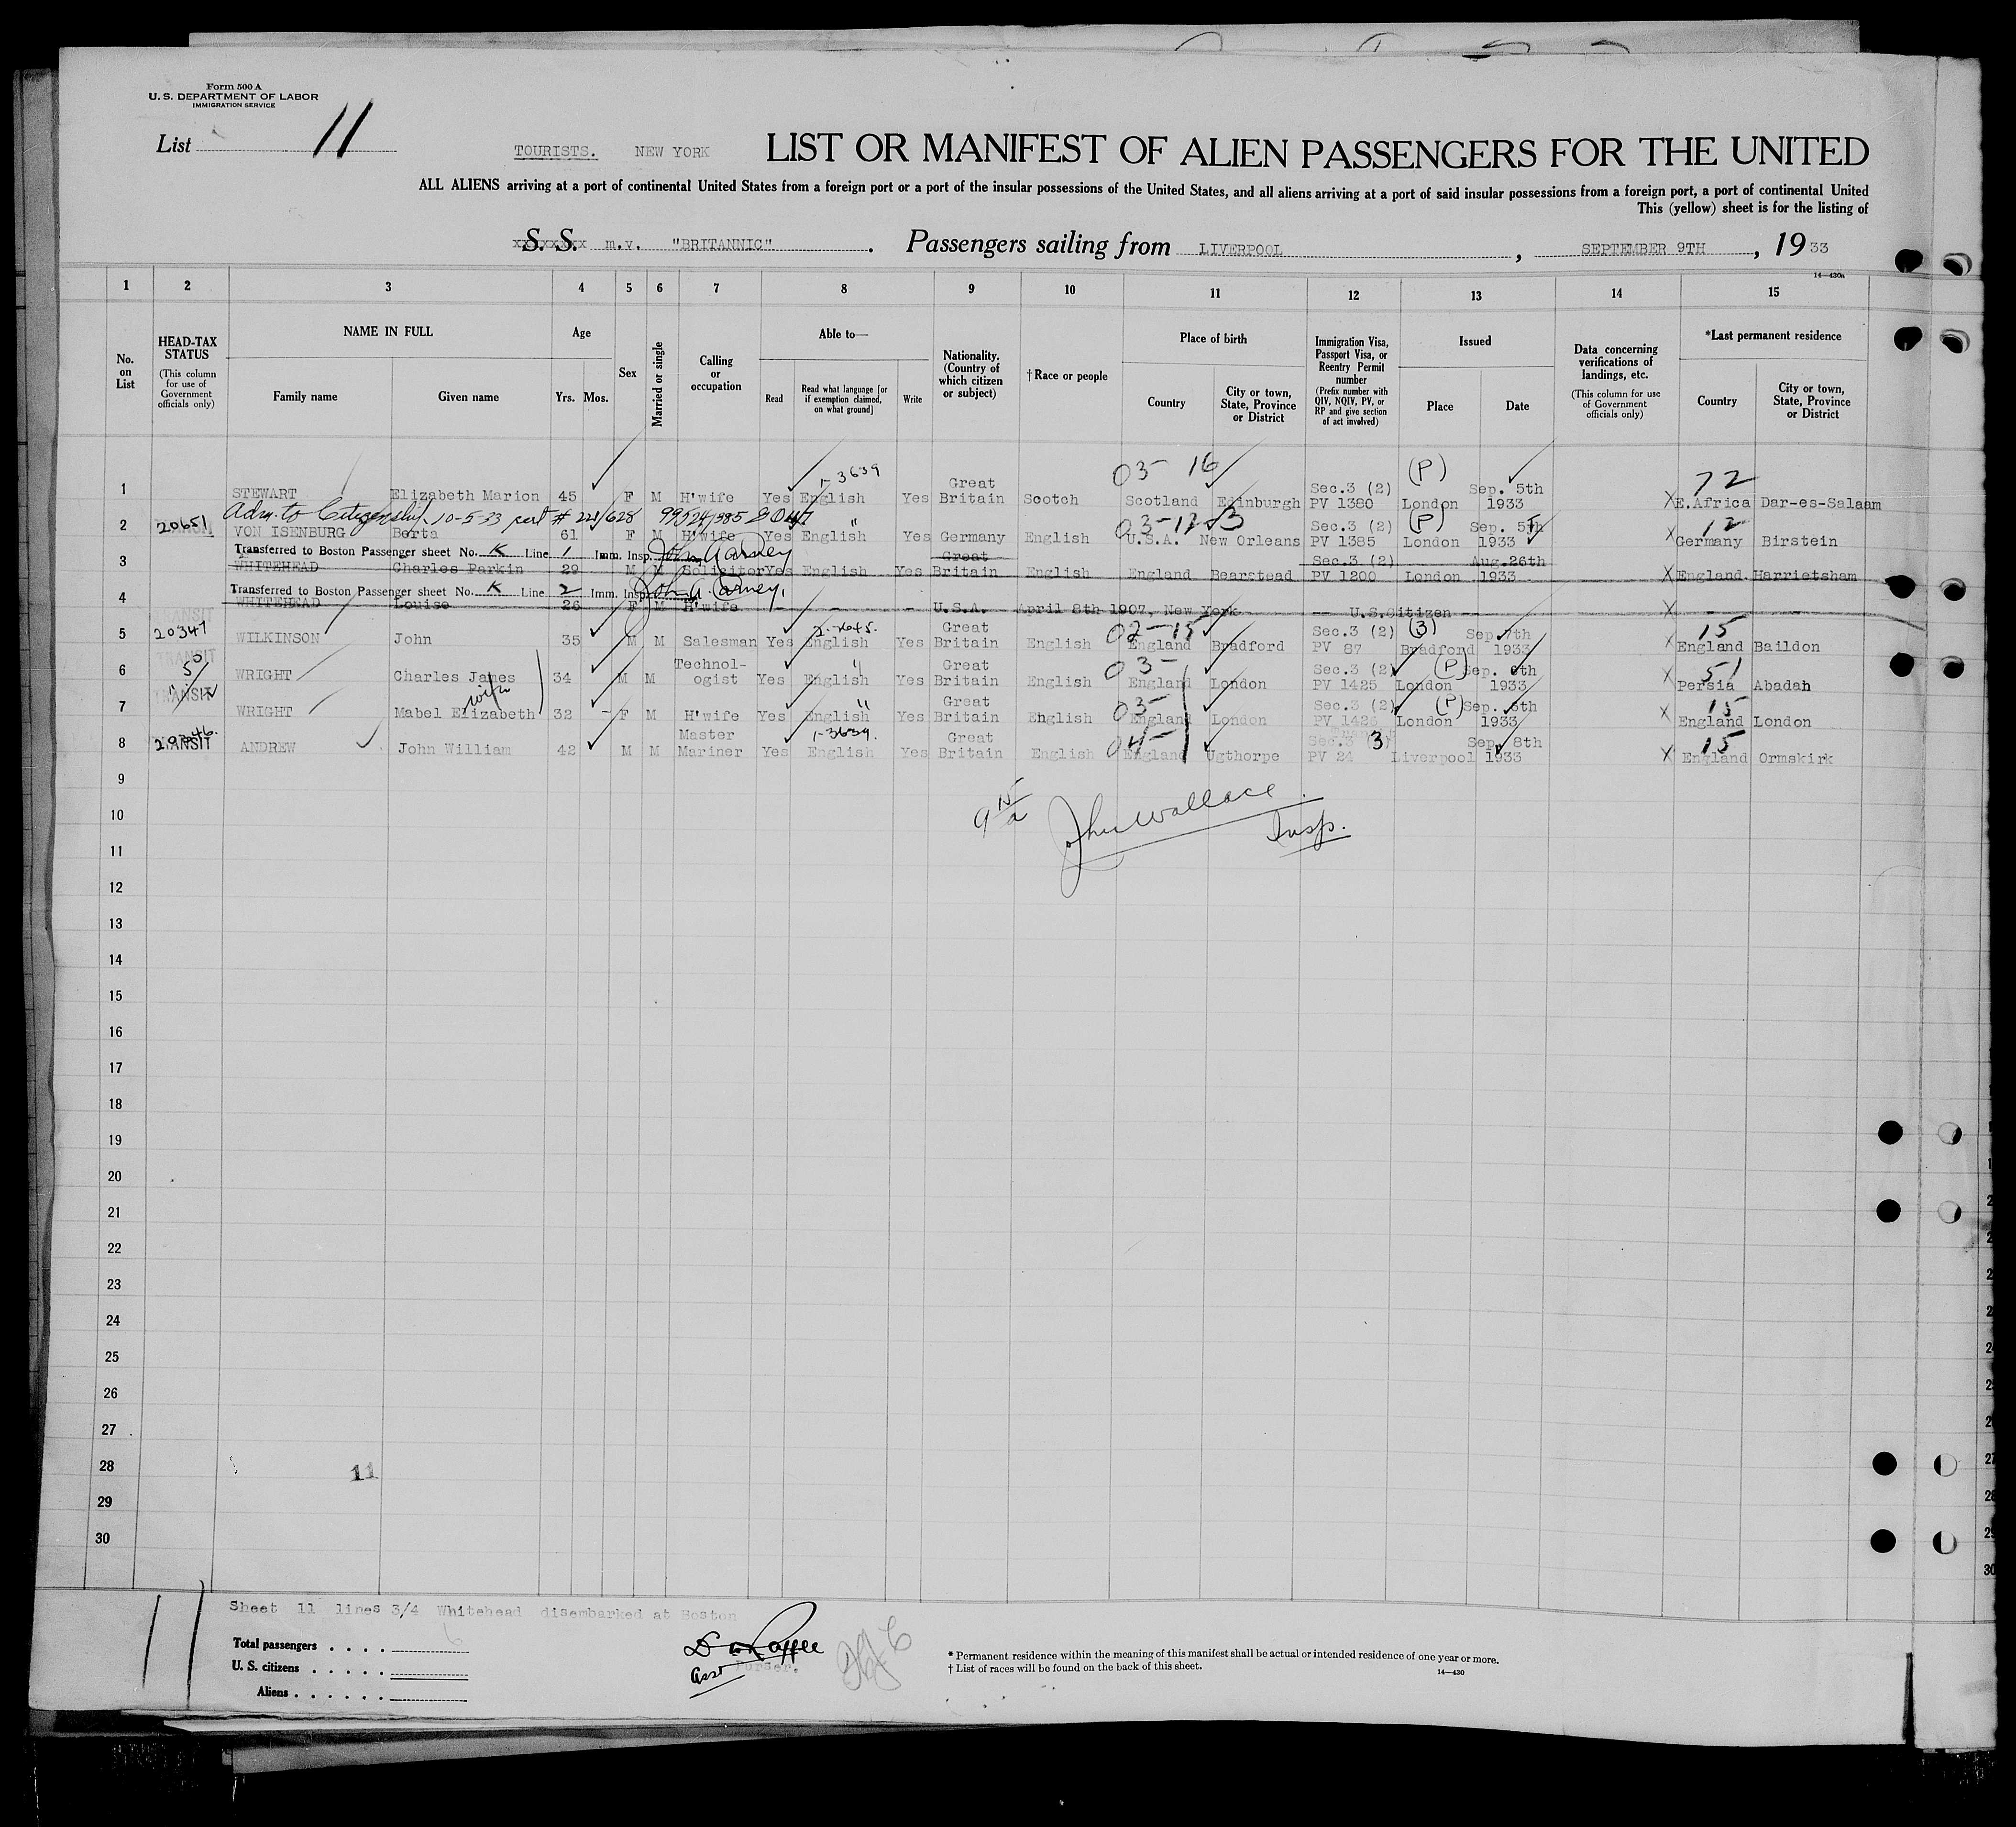 Form 500 A
U. S. DEPARTMENT OF LABOR
IMMIGRATION SERVICE
List 11
TOURISTS. NEW YORK LIST OR MANIFEST OF ALIEN PASSENGERS FOR THE UNITED
ALL ALIENS arriving at a port of continental United States from a foreign port or a port of the insular possessions of the United States, and all aliens arriving at a port of said insular possessions from a foreign port, a port of continental United
This (yellow) sheet is for the listing of
S. S. m.v. "BRITANNIC". Passengers sailing from LIVERPOOL, SEPTEMBER 9TH, 1933
14—430a
1 2 3 4 5 6 7 8 9 10 11 12 13 14 15
No. on List
HEAD-TAX STATUS (This column for use of Government officials only)
NAME IN FULL Family name Given name
Age Yrs. Mos.
Sex
Married or single
Calling or occupation
Able to— Read Read what language [or if exemption claimed, on what ground] Write
Nationality. (Country of which citizen or subject)
†Race or people
Place of birth Country City or town, State, Province or District
Immigration Visa, Passport Visa, or Reentry Permit number (Prefix number with QIV, NQIV, PV, or RP and give section of act involved)
Issued Place Date
Data concerning verifications of landings, etc. (This column for use of Government officials only)
*Last permanent residence Country City or town, State, Province or District
1-3639 03- 16 (P) 72
1 STEWART Elizabeth Marion 45 F M H'wife Yes English Yes Great Britain Scotch Scotland Edinburgh Sec.3 (2) PV 1380 London Sep. 5th 1933 X E.Africa Dar-es-Salaam
Adm. to Citizenship 10-5-33
20651 " (P) 12
2 VON ISENBURG Berta 61 F M H'wife Yes English Yes Germany English U.S.A. New Orleans Sec.3 (2) PV 1385 London Sep. 5th 1933 X Germany Birstein
Transferred to Boston Passenger sheet No. K Line 1 Imm. Insp. John A Carney
3 WHITEHEAD Charles Parkin 29 M M Solicitor Yes English Yes Great Britain English England Bearstead Sec.3 (2) PV 1200 London Aug.26th 1933 X England. Harrietsham
Transferred to Boston Passenger sheet No. K Line 2 Imm. Insp. John A. Carney.
4 WHITEHEAD Louise 26 F M H'wife - - - U.S.A. April 8th 1907, New York -- U.S.Citizen -- X - -
TRANSIT 20347 2-2645. 02-15 (3) 15
5 WILKINSON John 35 M M Salesman Yes English Yes Great Britain English England Bradford Sec.3 (2) PV 87 Bradford Sep. 7th 1933 X England Baildon
TRANSIT " 03- (P) 51
6 WRIGHT Charles James 34 M M Technologist Yes English Yes Great Britain English England London Sec.3 (2) PV 1425 London Sep. 6th 1933 X Persia Abadan
wife
TRANSIT " 03- (P) 15
7 WRIGHT Mabel Elizabeth 32 F M H'wife Yes English Yes Great Britain English England London Sec.3 (2) PV 1426 London Sep. 6th 1933 X England London
TRANSIT 20346. 1-3639. 04- (3) 15
8 ANDREW John William 42 M M Master Mariner Yes English Yes Great Britain English England Ugthorpe Sec.3 PV 24 Liverpool Sep. 8th 1933 X England Ormskirk
9
10 9 15/a John Wallace Insp.
11
12
13
14
15
16
17
18
19
20
21
22
23
24
25
26
27
28 11
29
30
11
Sheet 11 lines 3/4 Whitehead disembarked at Boston
Total passengers . . . .
U. S. citizens . . . . .
Aliens . . . . . .
Asst Purser.
* Permanent residence within the meaning of this manifest shall be actual or intended residence of one year or more.
† List of races will be found on the back of this sheet.
14—430